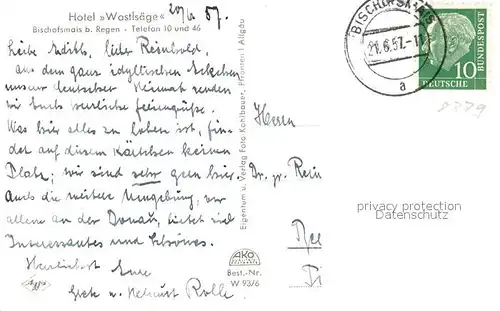 Hotel »Wastlsäge« 20/6 57.
Bischofsmais b. Regen - Telefon 10 und 46
Liebe Edith, lieber Reinhold,
aus dem ganz idyllischen Eckchen
unserer deutschen Heimat senden
wir Euch herzliche Feriengrüße.
Was hier alles zu loben ist, fin-
det auf diesem Kärtchen keinen
Platz; wir sind sehr gern hier.
Auch die weitere Umgebung, vor
allem an der Donau, bietet viel
Interessantes und Schönes.
Herzlichst Eure
Grete u. Helmut Rolle
Eigentum u. Verlag Foto Kohlbauer, Pfronten i. Allgäu
AKO
Best.-Nr.
W 9376
Agfa
BISCHOFSMAIS
21.6.57.-17
a
10
DEUTSCHE
BUNDESPOST
8779
Herrn
Dr. jr. Rein
privacy protection
Datenschutz